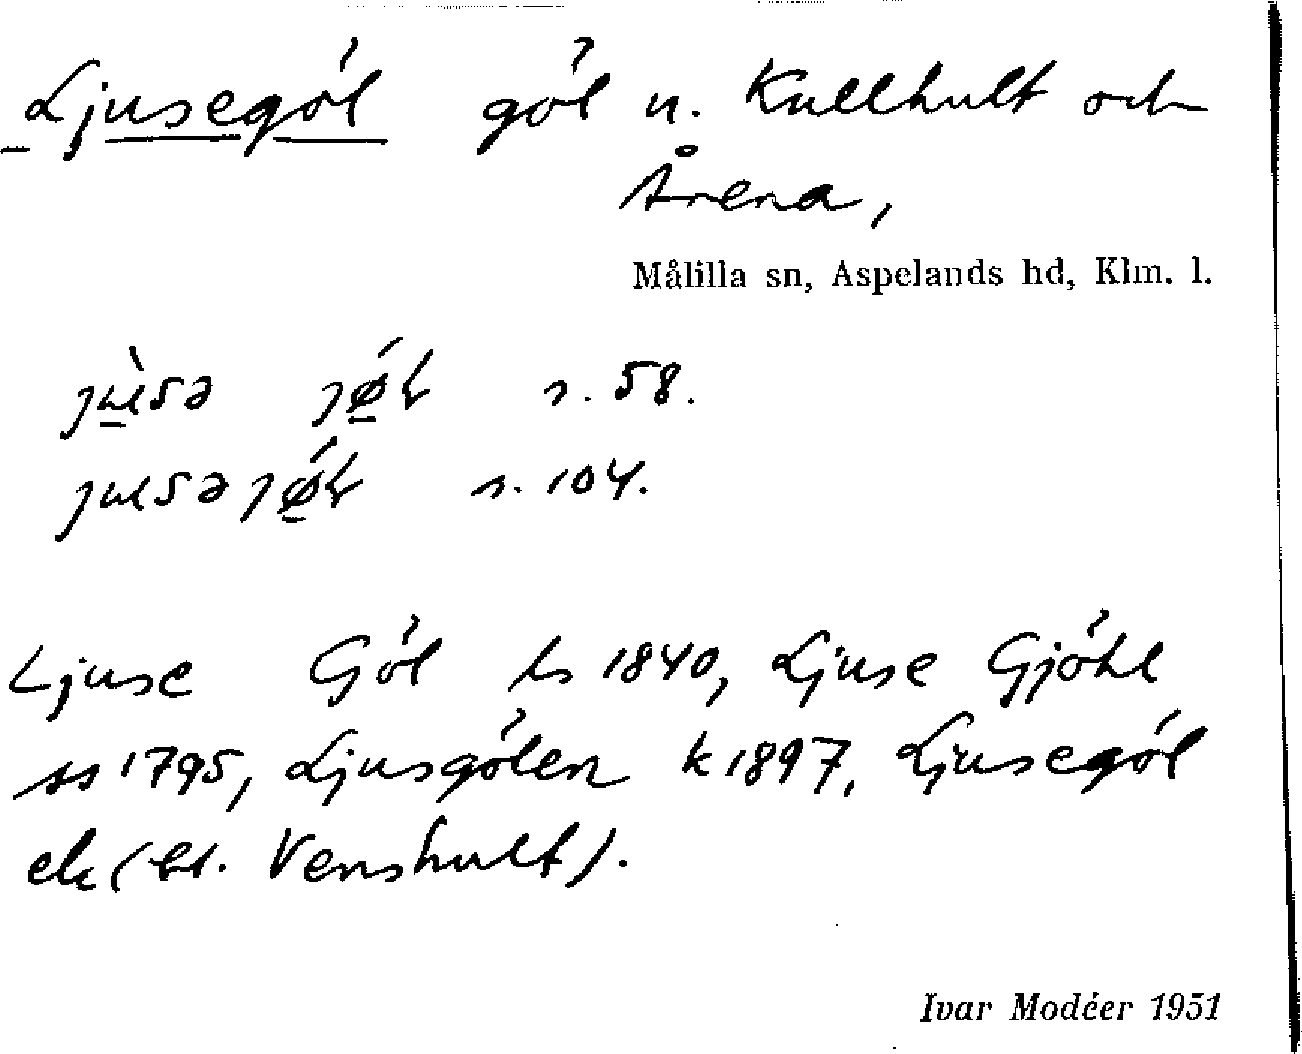 Ljusegöl göl n. Kullhult och
Årena,
Målilla sn, Aspelands hd, Klm. l.
s. 58.
s. 104.
Ljuse Göl ls 1840, Ljuse Gjöhl
ss 1795, Ljusgölen k 1897, Ljusegöl
ek (bl. Venshult).
Ivar Modéer 1951